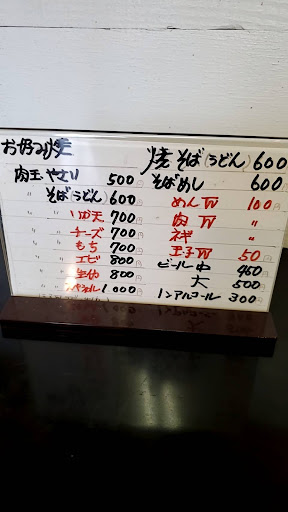 お好み焼
肉玉 やさい 500円
〃 〃 そば(うどん) 600円
〃 〃 いか天 700円
〃 〃 チーズ 700円
〃 〃 もち 700円
〃 〃 エビ 800円
〃 〃 生イカ 800円
スペシャル 1000円
焼そば(うどん) 600円
そばめし 600円
めんW 100円
肉W 〃
ネギ 〃
玉子W 50円
ビール中 450円
大 500円
ノンアルコール 300円